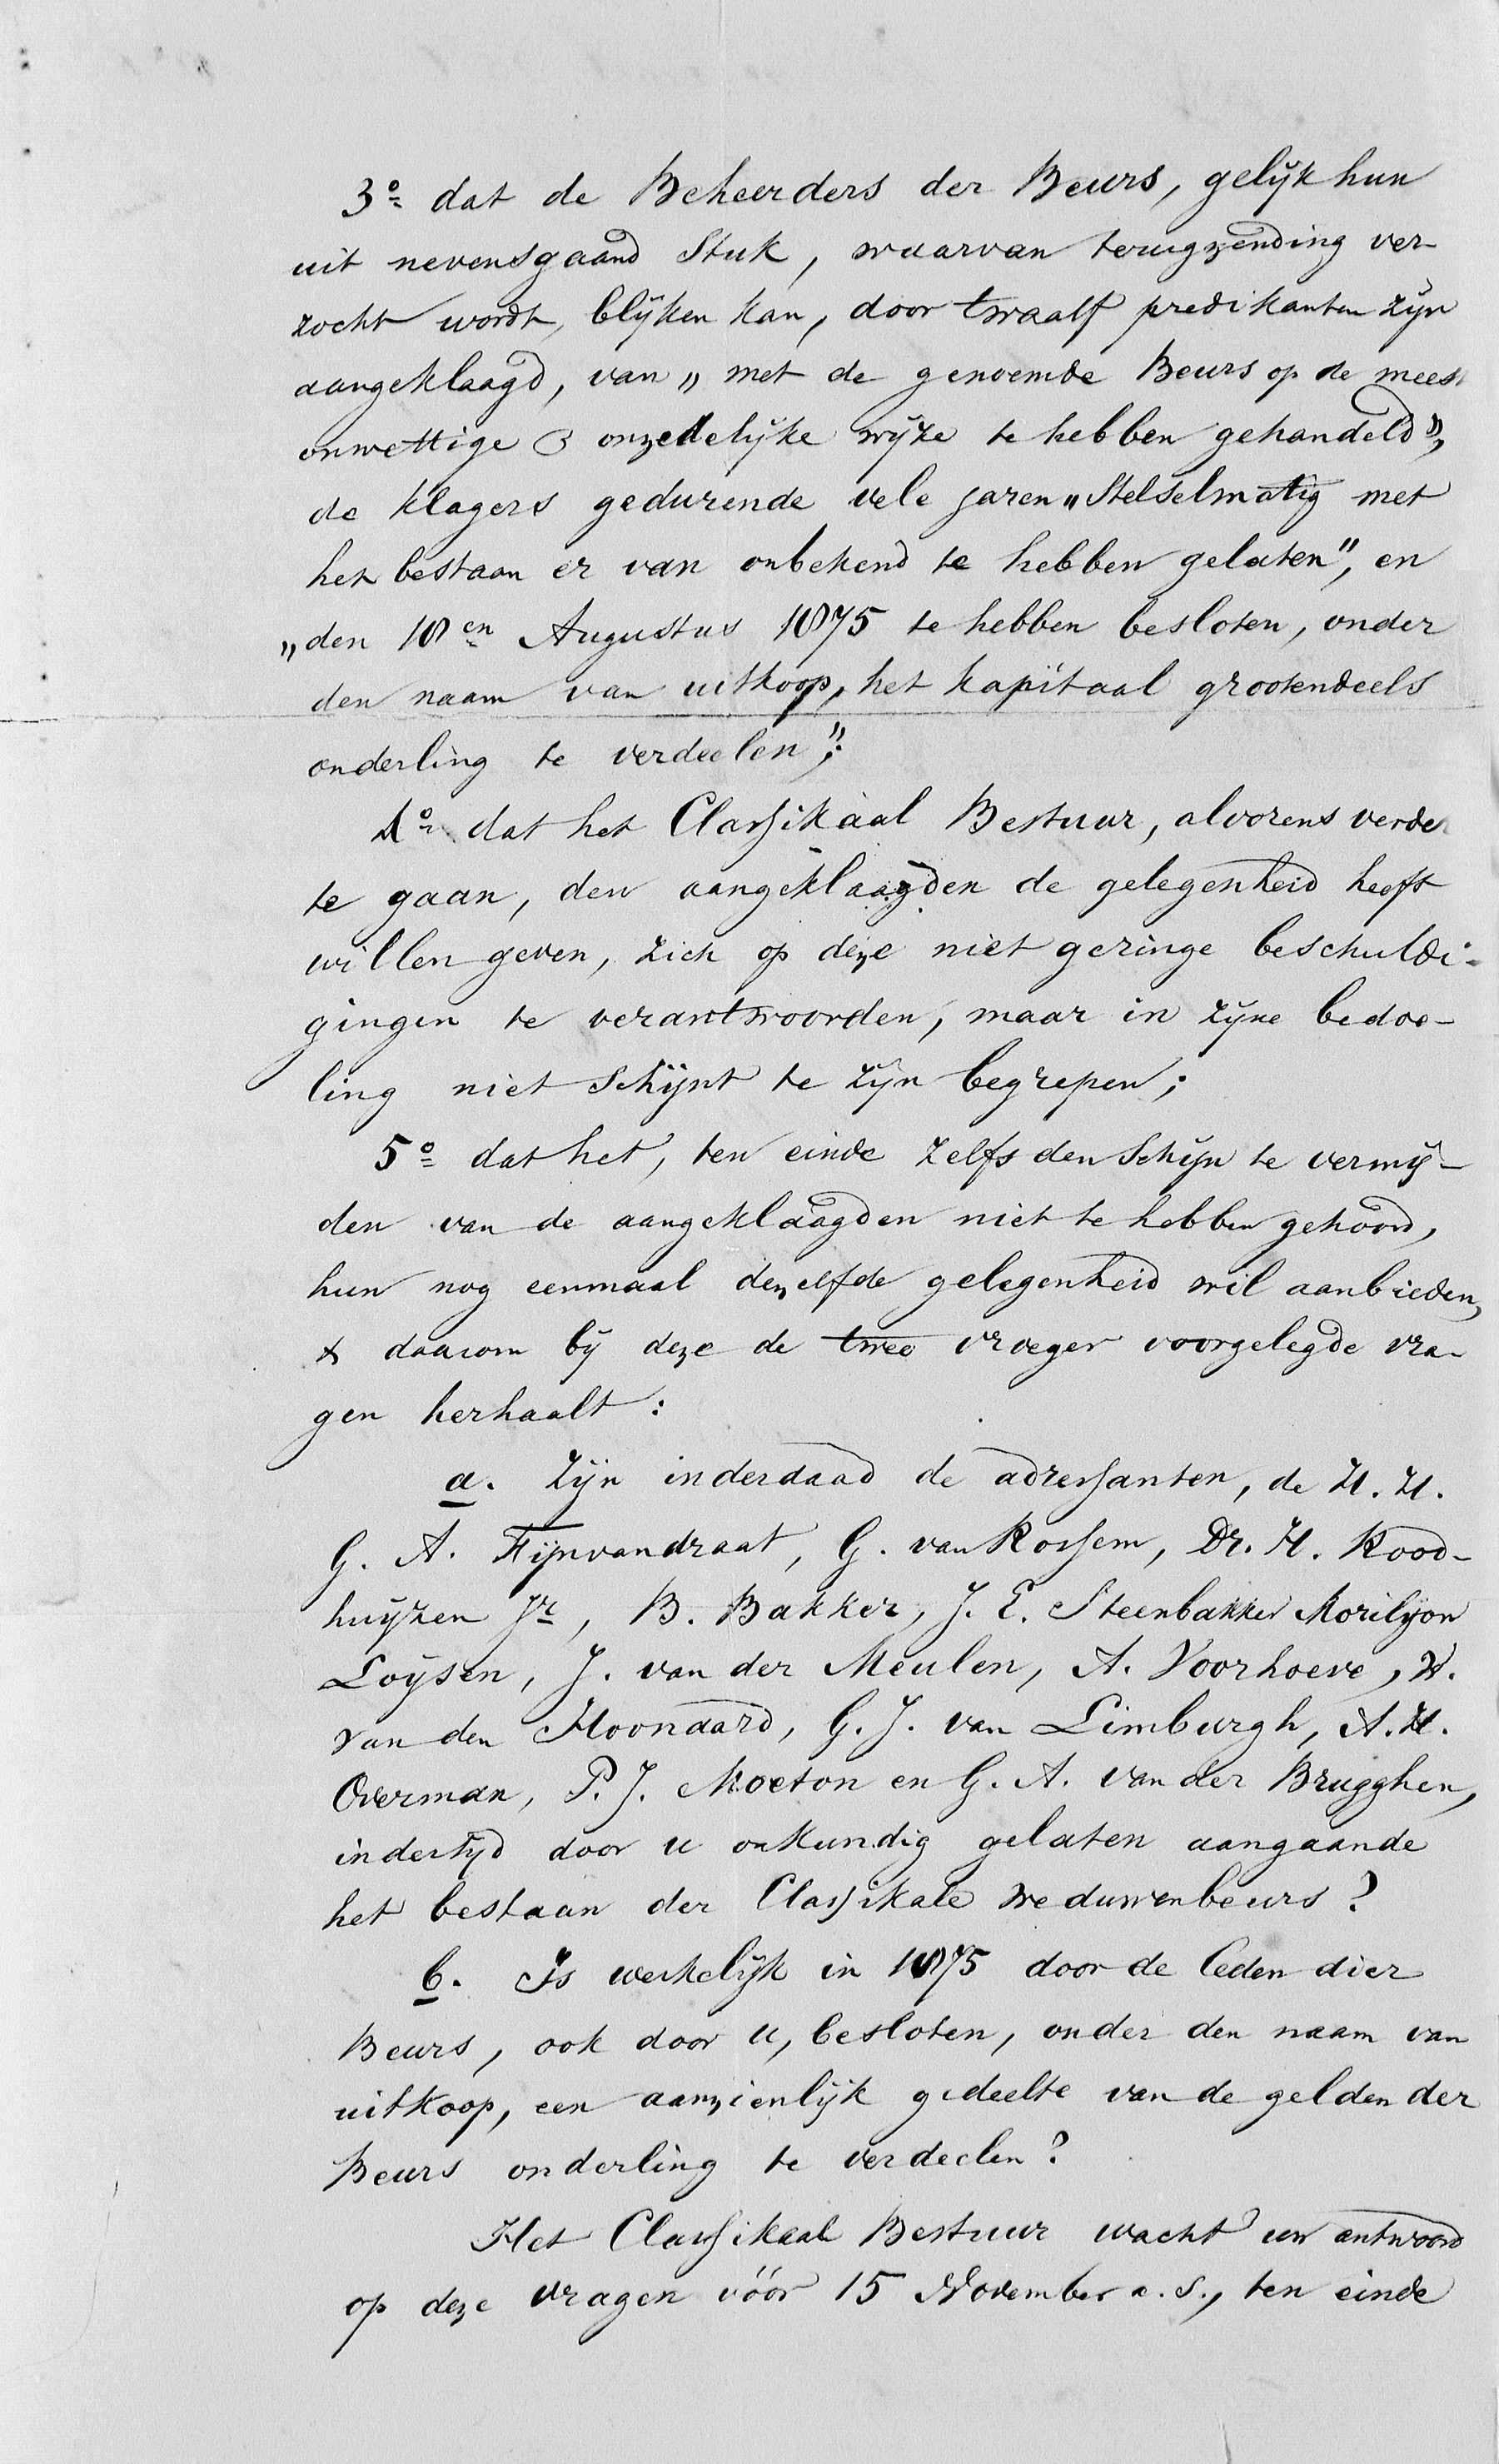 3o dat de Beheerders der Beurs, gelijk hun
uit nevensgaand Stuk, waarvan terugzending ver-
zocht wordt, blijken kan, door twaalf predikanten zijn
aangeklaagd, van „ met de genoemde Beurs op de meest
onwettige & onzedelijke wijze te hebben gehandeld",
de klagers gedurende vele jaren „Stelselmatig met
het bestaan er van onbekend te hebben gelaten", en
„den 18en Augustus 1875 te hebben besloten, onder
den naam van uitkoop, het kapitaal grootendeels
onderling te verdeelen";
4o dat het Classikaal Bestuur, alvorens verder
te gaan, den aangeklaagden de gelegenheid heeft
willen geven, zich op deze niet geringe beschuldi-
gingen te verantwoorden, maar in zijne bedoe-
ling niet Schijnt te zijn begrepen;
5o dat het, ten einde zelfs den Schijn te vermij-
den van de aangeklaagden niet te hebben gehoord,
hun nog eenmaal dezelfde gelegenheid wil aanbieden,
& daarom bij deze de twee vroeger voorgelegde vra-
gen herhaalt:
a. Zijn inderdaad de adressanten, de H. H.
G. A. Fijnvandraat, G. van Rossem, Dr. H. Rood-
huijzen Jr, B. Bakker, J. E. Steenbakker Morilyon
Loijsen, J. van der Meulen, A. Voorhoeve, W.
van den Hoonaard, G. J. van Limburgh, A. H.
Overman, P. J. Moeton en G. A. van der Brugghen,
indertijd door u onkundig gelaten aangaande
het bestaan der Classikale weduwenbeurs?
b. Is werkelijk in 1875 door de leden dier
Beurs, ook door u, besloten, onder den naam van
uitkoop, een aanzienlijk gedeelte van de gelden der
Beurs onderling te verdeelen?
Het Classikaal Bestuur wacht uw antwoord
op deze vragen vóór 15 November a. s., ten einde